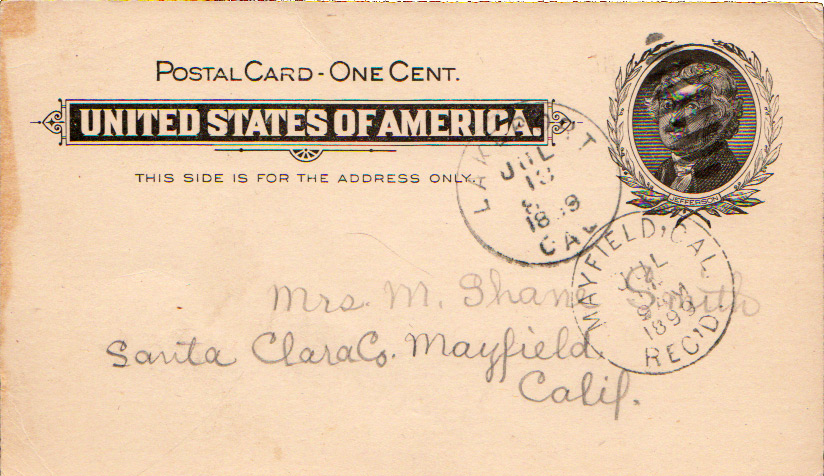 POSTAL CARD - ONE CENT.
UNITED STATES OF AMERICA.
THIS SIDE IS FOR THE ADDRESS ONLY.
JEFFERSON
JUL
13
CAL
MAYFIELD, CAL.
JUL
1899
REC'D.
Mrs. M. Shane Smith
Santa Clara Co. Mayfield.
Calif.